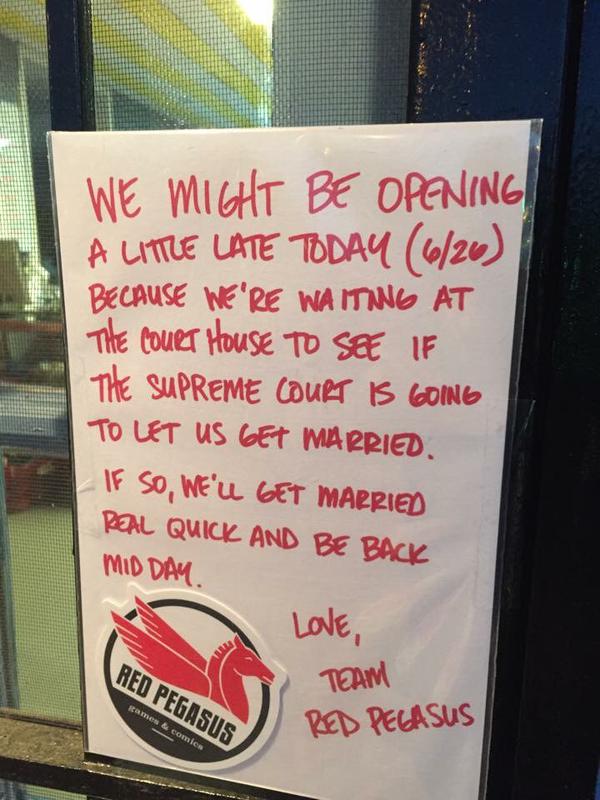 WE MIGHT BE OPENING
A LITTLE LATE TODAY (6/26)
BECAUSE WE'RE WAITING AT
THE COURT HOUSE TO SEE IF
THE SUPREME COURT IS GOING
TO LET US GET MARRIED.
IF SO, WE'LL GET MARRIED
REAL QUICK AND BE BACK
MID DAY.
LOVE,
TEAM
RED PEGASUS
RED PEGASUS
games & comics